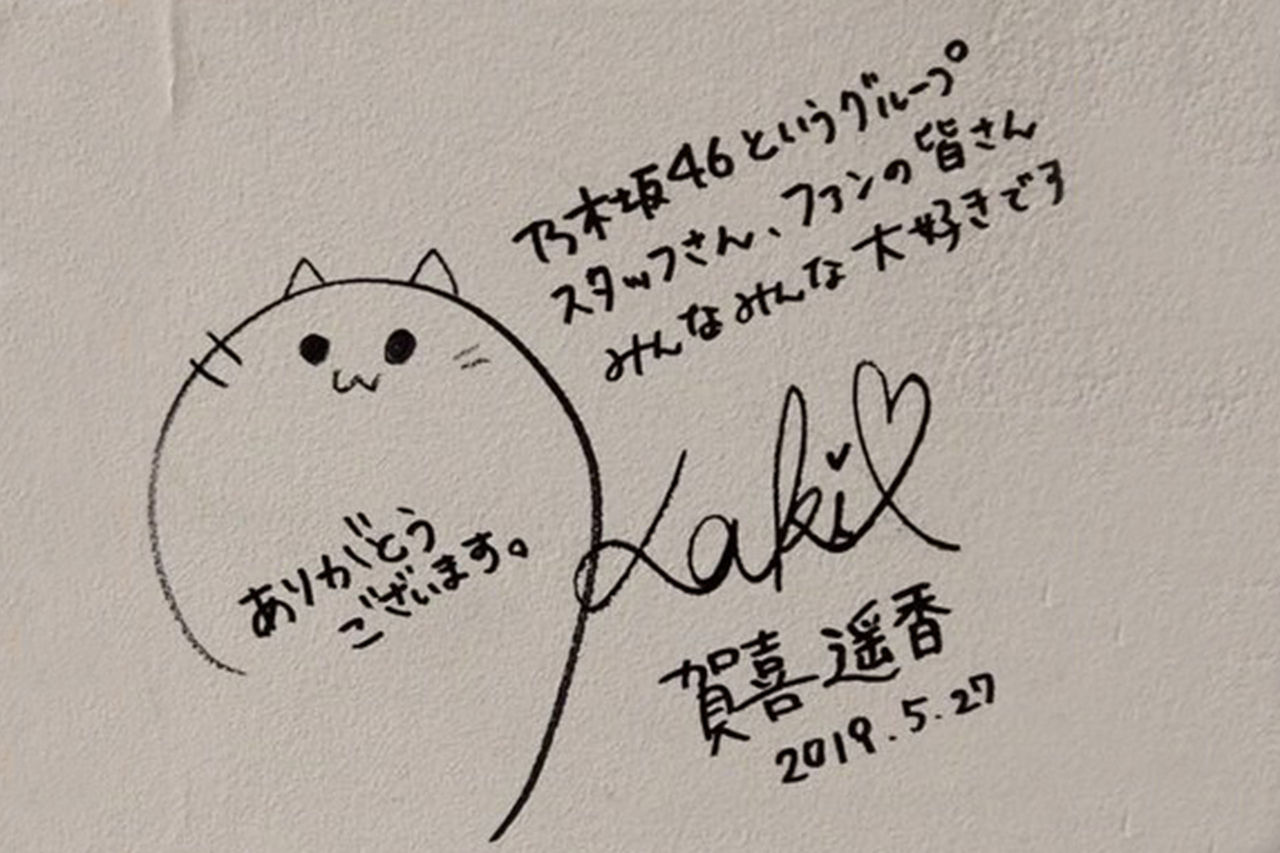 乃木坂46というグループ
スタッフさん、ファンの皆さん
みんなみんな大好きです
ありがとう
ございます。
Kaki
賀喜遥香
2019.5.27